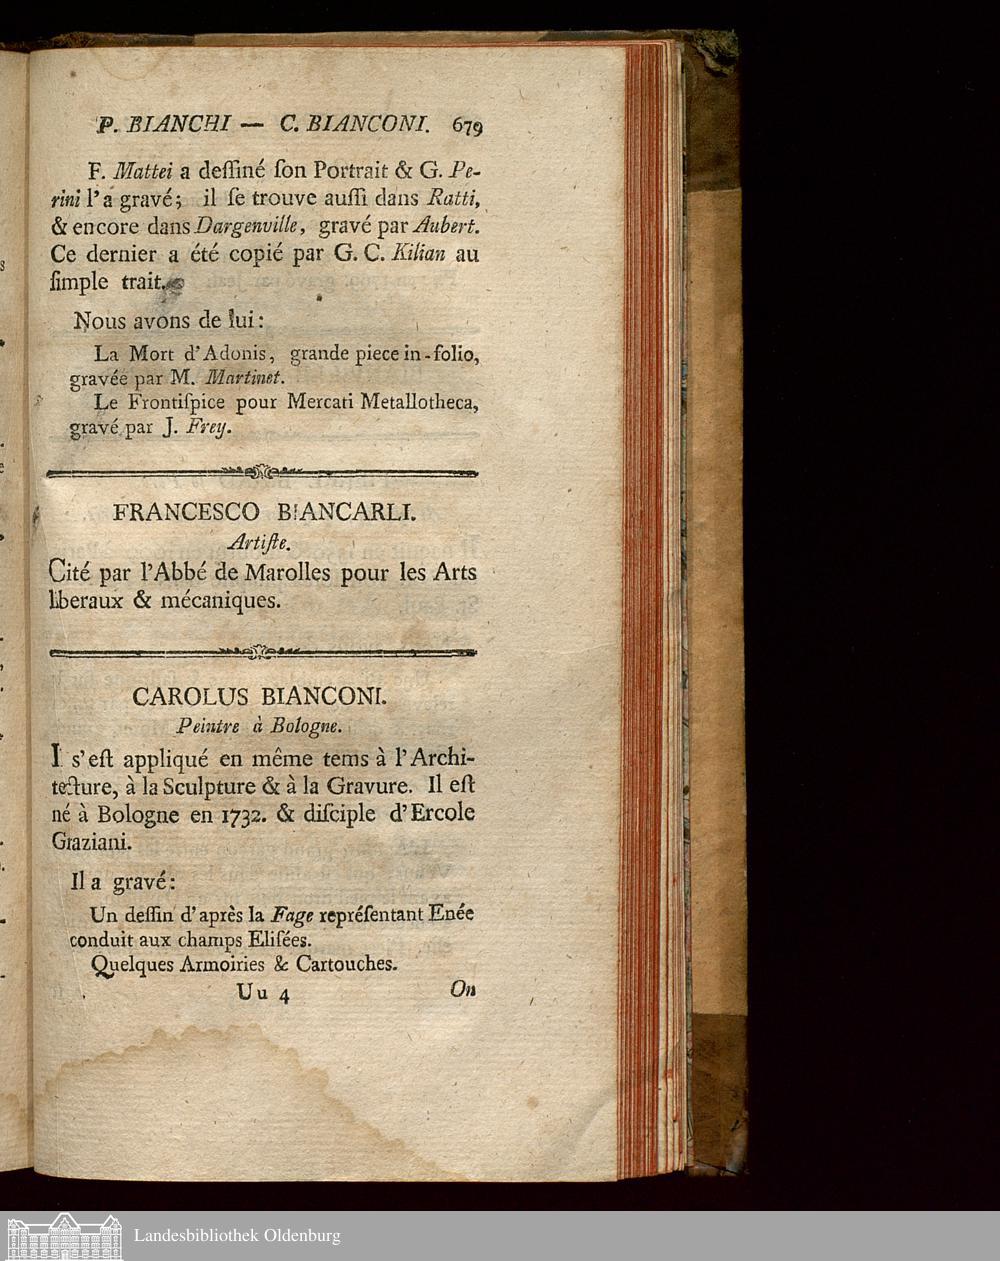 P. BIANCHI — C. BIANCONI. 679
F. Mattei a deſſiné ſon Portrait & G. Pe-
rini l'a gravé; il ſe trouve auſſi dans Ratti,
& encore dans Dargenville, gravé par Aubert.
Ce dernier a été copié par G. C. Kilian au
ſimple trait.
Nous avons de lui:
La Mort d'Adonis, grande piece in-folio,
gravée par M. Martinet.
Le Frontiſpice pour Mercati Metallotheca,
gravé par J. Frey.
FRANCESCO BIANCARLI.
Artiſte.
Cité par l'Abbé de Marolles pour les Arts
liberaux & mécaniques.
CAROLUS BIANCONI.
Peintre à Bologne.
Il s'eſt appliqué en même tems à l'Archi-
tecture, à la Sculpture & à la Gravure. Il eſt
né à Bologne en 1732. & diſciple d'Ercole
Graziani.
Il a gravé:
Un deſſin d'après la Fage repréſentant Enée
conduit aux champs Eliſées.
Quelques Armoiries & Cartouches.
Uu 4 On
Landesbibliothek Oldenburg